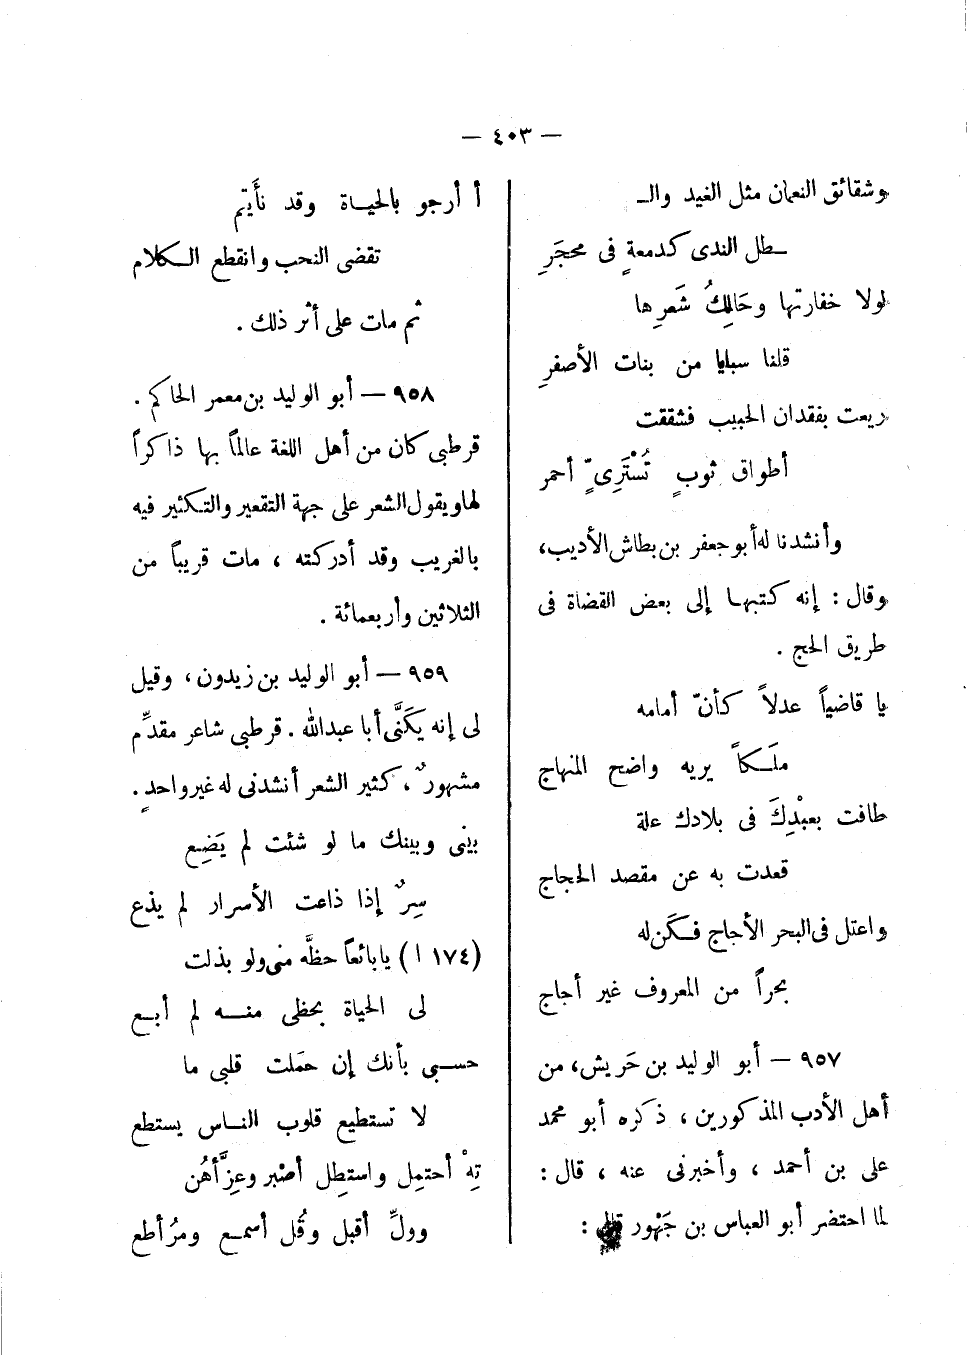 — ٤٠٣ —
وشقائق النعمان مثل الغيد والـ
ـطل الندى كدمعةٍ فى محجَرِ
لولا خفارتها وحَالِكُ شَعرِها
قلنا سبايا من بنات الأصفرِ
ريعت بفقدان الحبيب فشققت
أطواق ثوبٍ تُسْتَرِىٍّ أحمر
وأنشدنا له أبو جعفر بن بطاش الأديب،
وقال : إنه كتبها إلى بعض القضاة فى
طريق الحج .
يا قاضياً عدلاً كأنّ أمامه
ملَكاً يريه واضح المنهاج
طافت بعبْدِكَ فى بلادك علة
قعدت به عن مقصد الحجاج
واعتل فى البحر الأجاج فكَن له
بحراً من المعروف غير أجاج
٩٥٧ — أبو الوليد بن حَريش، من
أهل الأدب المذكورين ، ذكره أبو محمد
على بن أحمد ، وأخبرنى عنه ، قال :
لما احتضر أبو العباس بن جَهْور قال :
أ أرجو بالحياة وقد نأَيتم
تقضى النحب وانقطع الكلام
ثم مات على أثر ذلك .
٩٥٨ — أبو الوليد بن معمر الحاكم .
قرطبى كان من أهل اللغة عالماً بها ذاكراً
لها ويقول الشعر على جهة التقعير والتكثير فيه
بالغريب وقد أدركته ، مات قريباً من
الثلاثين وأربعمائة .
٩٥٩ — أبو الوليد بن زيدون، وقيل
لى إنه يكَنَّى أبا عبدالله . قرطبى شاعر مقدِّم
مشهورٌ ، كثير الشعر أنشدنى له غير واحدٍ .
بينى وبينك ما لو شئت لم يَضِع
سِرٌ إذا ذاعت الأسرار لم يذع
(١٧٤ ا) يا بائعاً حظَّه منى ولو بذلت
لى الحياة بحظى منه لم أبع
حسبى بأنك إن حمَلت قلبى ما
لا تستطيع قلوب الناس يستطع
تِهْ أحتمِل واستطِل أصْبر وعِزَّ أهُن
وولِّ أقبل وقُل أسمع ومُر أطع